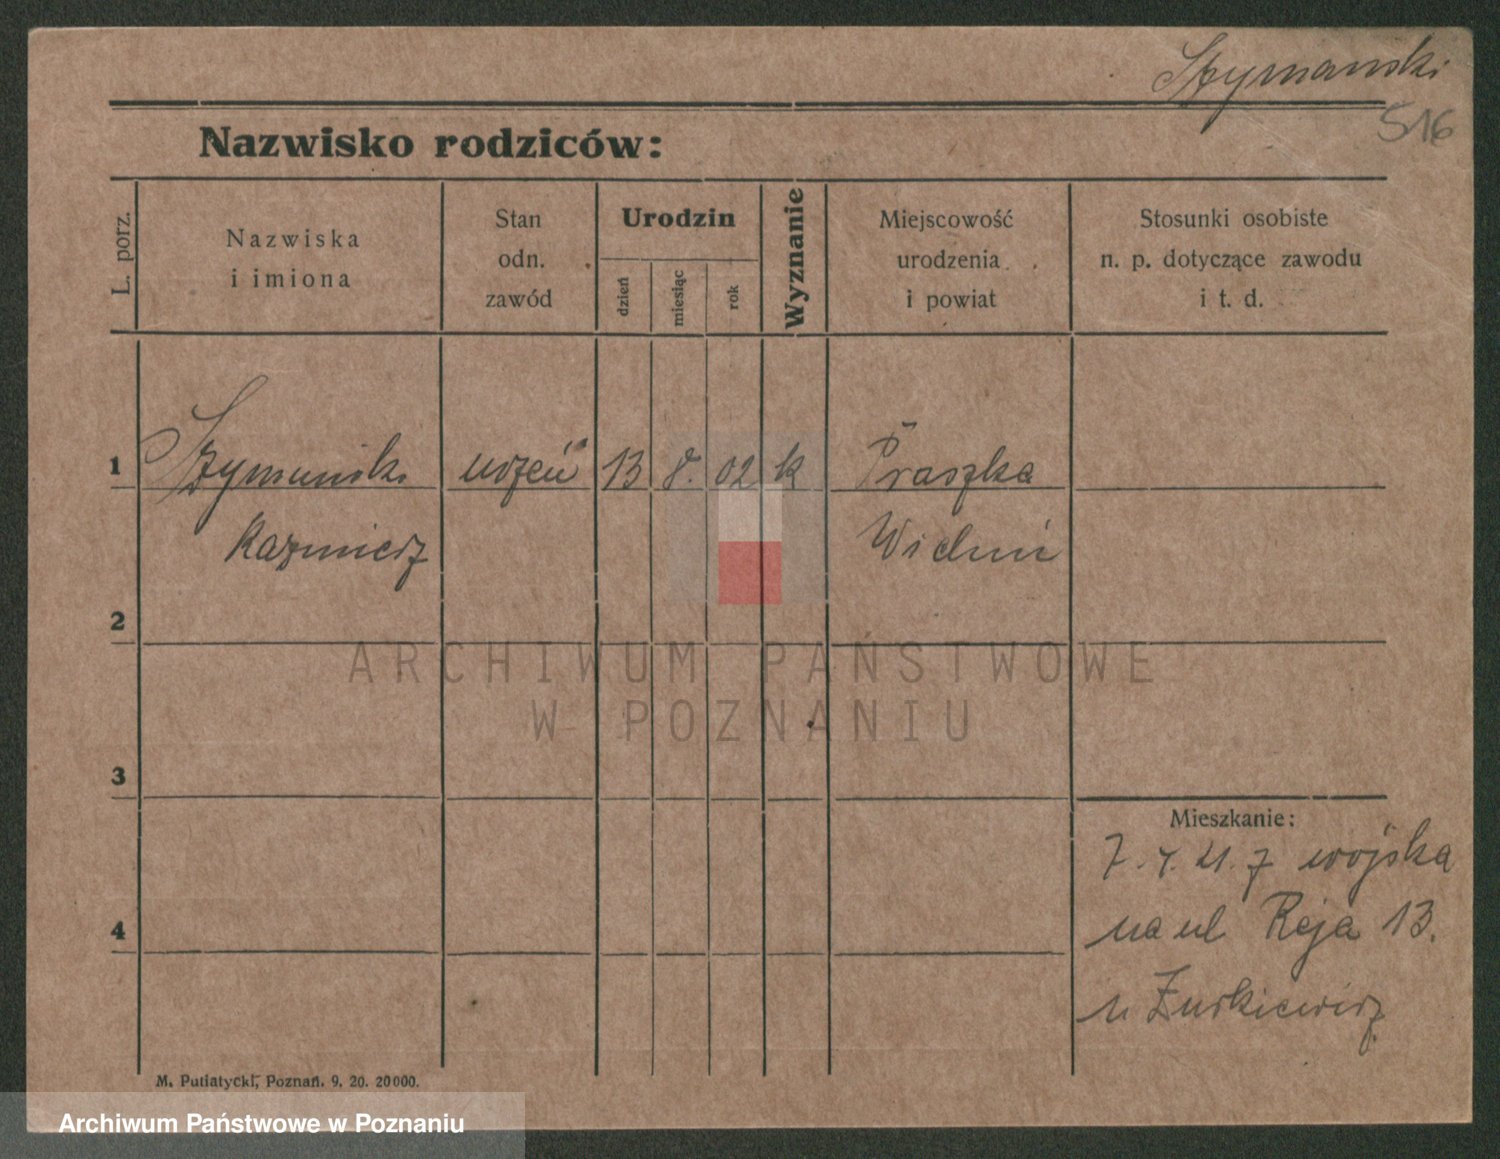 Szymański
516
Nazwisko rodziców:
L. porz.
Nazwiska
i imiona
Stan
odn.
zawód
Urodzin
dzień
miesiąc
rok
Wyznanie
Miejscowość
urodzenia
i powiat
Stosunki osobiste
n. p. dotyczące zawodu
i t. d.
1
Szymański uczeń 13 8. 02 k Praszka
Kazimierz Wieluń
2
ARCHIWUM PAŃSTWOWE
W POZNANIU
3
Mieszkanie:
7. 7. 21. z wojska
4
na ul Reja 13.
u Żurkiewicz
M. Putiatycki, Poznań. 9. 20. 20000.
Archiwum Państwowe w Poznaniu